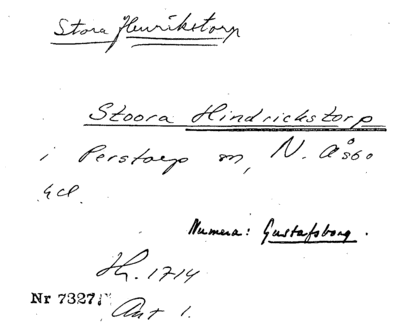 Stora Henrikstorp
Stoora Hindrickstorp
i Perstorp sn, N. Åsbo
hd.
Numera: Gustafsborg.
Jb. 1714
Nr 7327
Ant 1.